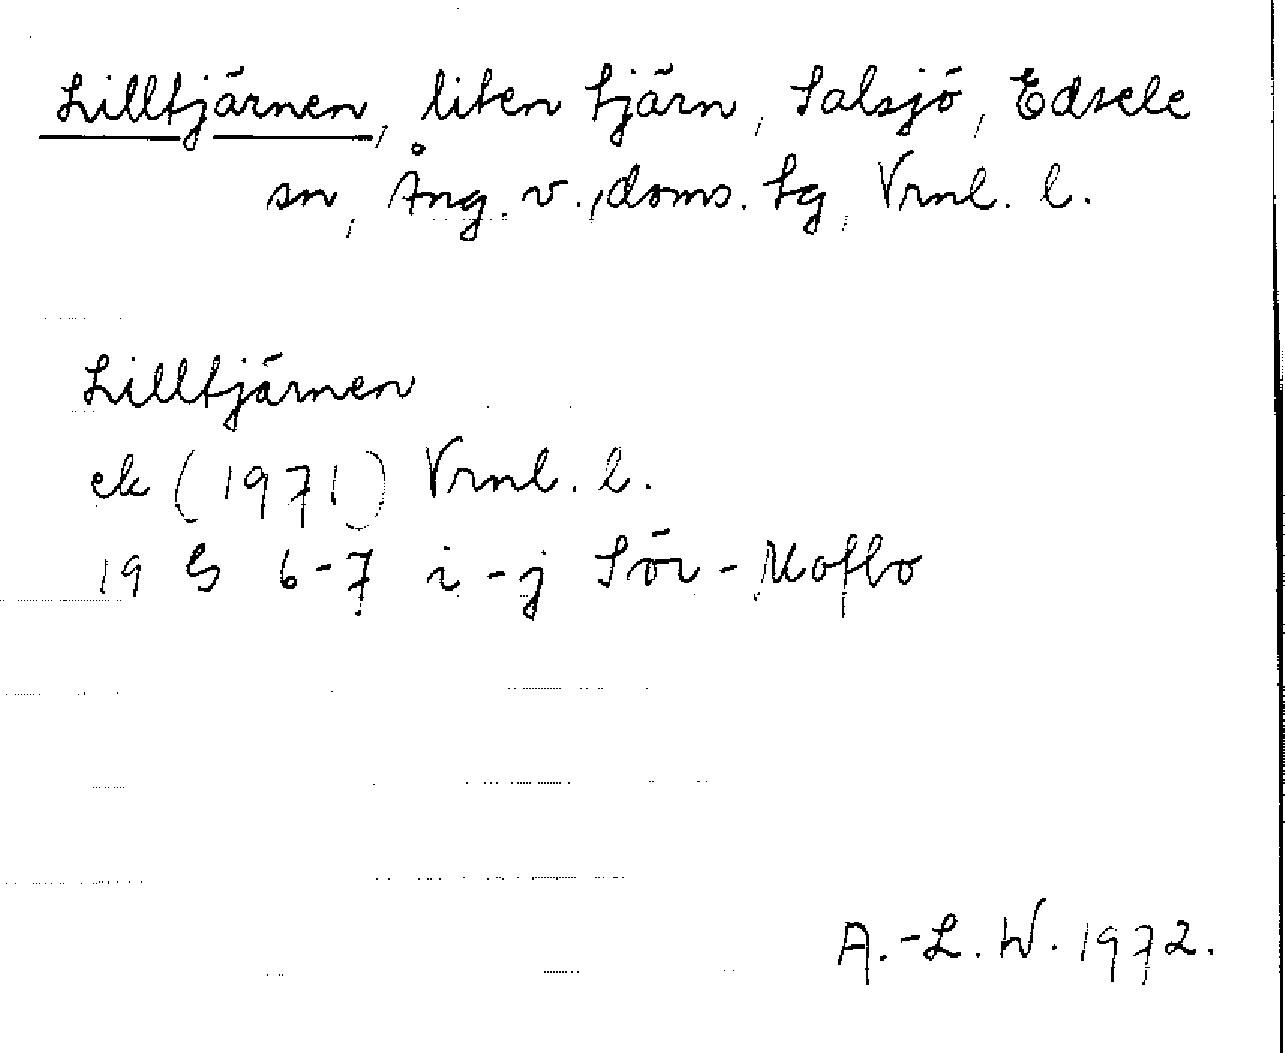 Lilltjärnen, liten tjärn, Salsjö, Edsele
sn, Ång. v., doms. tg, Vrnl. l.
Lilltjärnen
ek (1971) Vrnl. l.
19 G 6-7 i-j Sör-Moflo
A.-L. W. 1972.